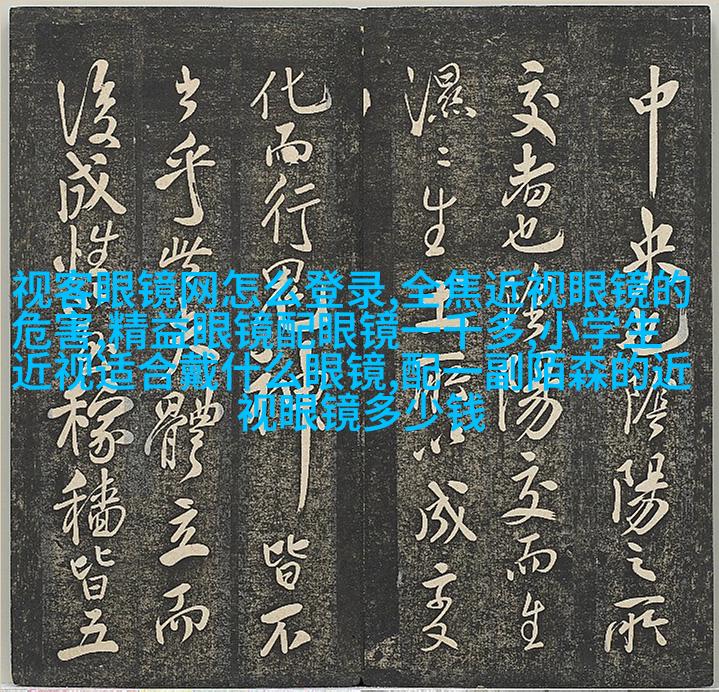 视客眼镜网怎么登录,全焦近视眼镜的
危害,精益眼镜配眼镜一千多,小学生
近视适合戴什么眼镜,配一副陌森的近
视眼镜多少钱
中央也陰陽之所
交者也陰陽交而生
濕〻生土以成变
化而行鬼神皆不
出乎此大體立而
後成性稼穡皆五